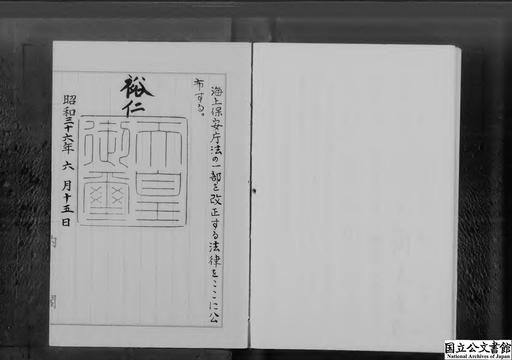 海上保安庁法の一部を改正する法律をここに公
布する。
裕仁
天皇
御璽
昭和三十六年六月十五日
国立公文書館
National Archives of Japan